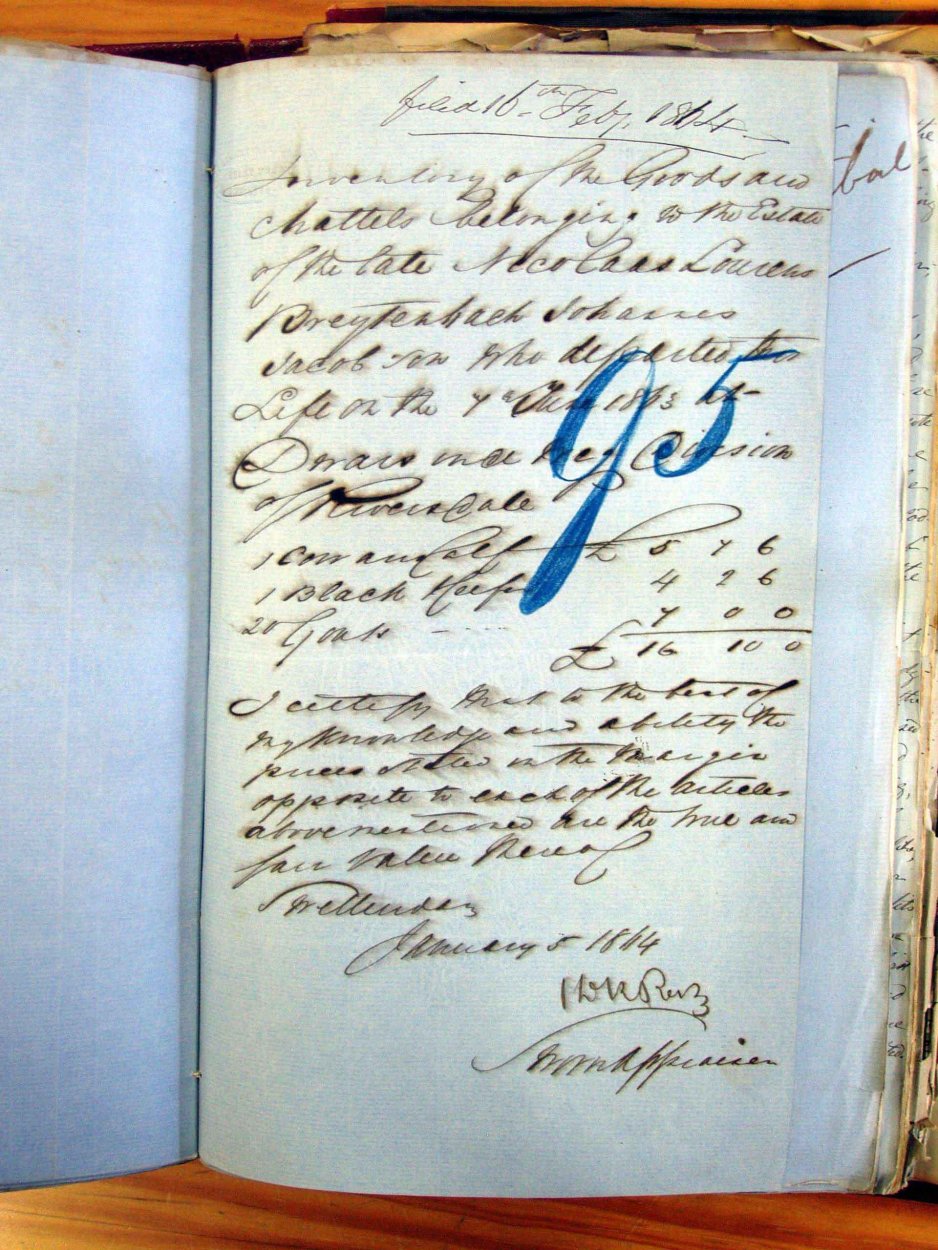 filed 16th Feby. 1864.
Inventory of the Goods and
chattels belonging to the Estate
of the late Nicolaas Lourens
Breytenbach Johannes
Jacob son who departed this
Life on the 7th June 1863 at
Division
of Riversdale
95
1 Cow and Calf £ 5 7 6
1 Black 4 2 6
20 Goats 7 0 0
£ 16 10 0
I certify that to the best of
my knowledge and ability the
prices stated in the margin
opposite to each of the articles
abovementioned are the true and
fair value thereof
Swellendam
January 5 1864
Sworn Appraiser